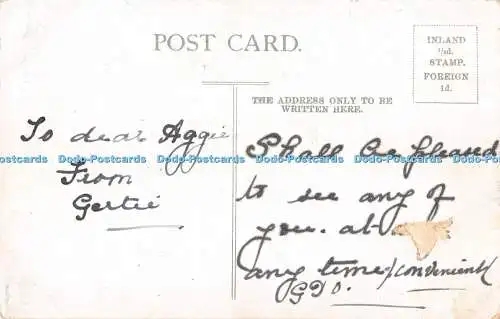 POST CARD.
INLAND
½d.
STAMP.
FOREIGN
1d.
THE ADDRESS ONLY TO BE
WRITTEN HERE.
To dear Aggie
From
Gertie
Shall be pleased
to see any of
you. at
any time/convenient
G D O.
Dodo-Postcards Dodo-Postcards Dodo-Postcards Dodo-Postcards Dodo-Postcards